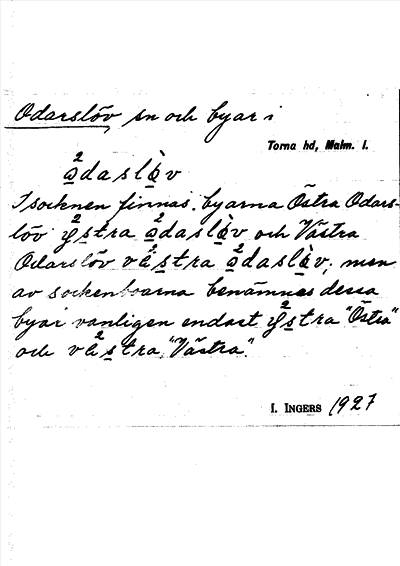 Odarslöv, sn och byar i
Torna hd, Malm. l.
ò²daslà̱v
I socknen finnas byarna Östra Odars-
löv y²stra o²daslàv och Västra
Odarslöv vä²stra o²daslàv, men
av sockenboarna benämnes dessa
byar vanligen endast y²stra "Östra"
och vä²stra, "Västra".
I. INGERS 1927